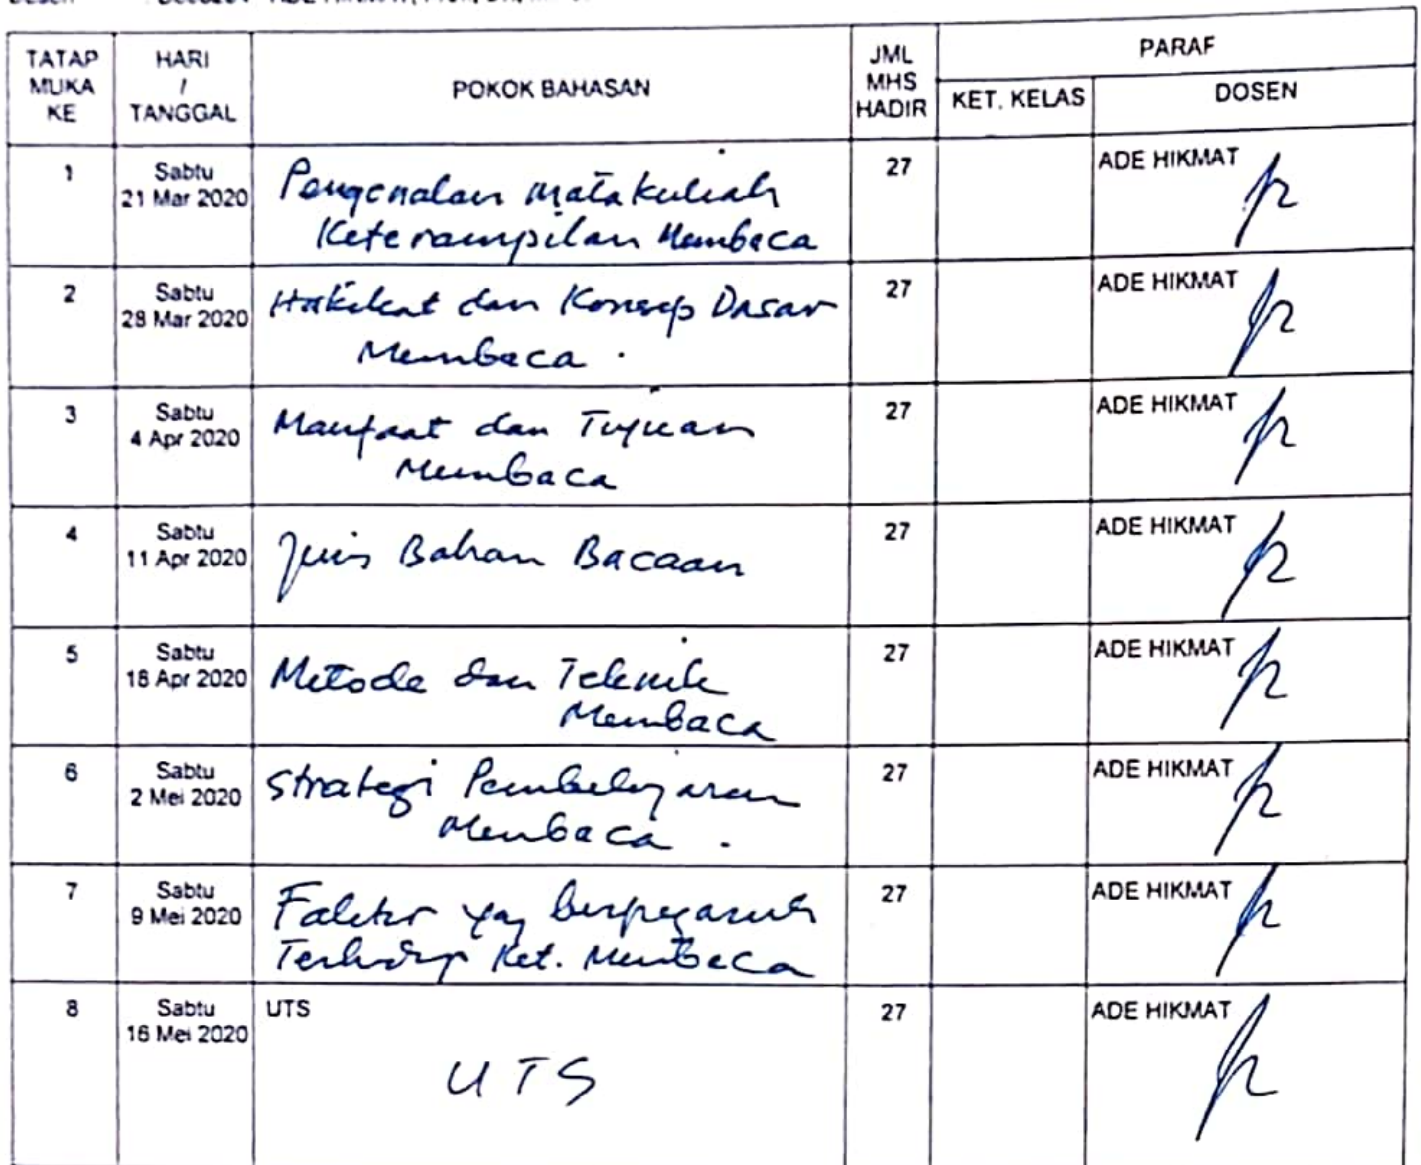 TATAP
MUKA
KE
HARI
/
TANGGAL
POKOK BAHASAN
JML
MHS
HADIR
PARAF
KET. KELAS
DOSEN
1
Sabtu
21 Mar 2020
Pengenalan Matakuliah
Keterampilan Membaca
27
ADE HIKMAT
2
Sabtu
28 Mar 2020
Hakikat dan Konsep Dasar
Membaca .
27
ADE HIKMAT
3
Sabtu
4 Apr 2020
Manfaat dan Tujuan
Membaca
27
ADE HIKMAT
4
Sabtu
11 Apr 2020
Jenis Bahan Bacaan
27
ADE HIKMAT
5
Sabtu
18 Apr 2020
Metode dan Teknik
Membaca
27
ADE HIKMAT
6
Sabtu
2 Mei 2020
Strategi Pembelajaran
Membaca .
27
ADE HIKMAT
7
Sabtu
9 Mei 2020
Faktor yg
Terhadap Ket. Membaca
27
ADE HIKMAT
8
Sabtu
16 Mei 2020
UTS
UTS
27
ADE HIKMAT